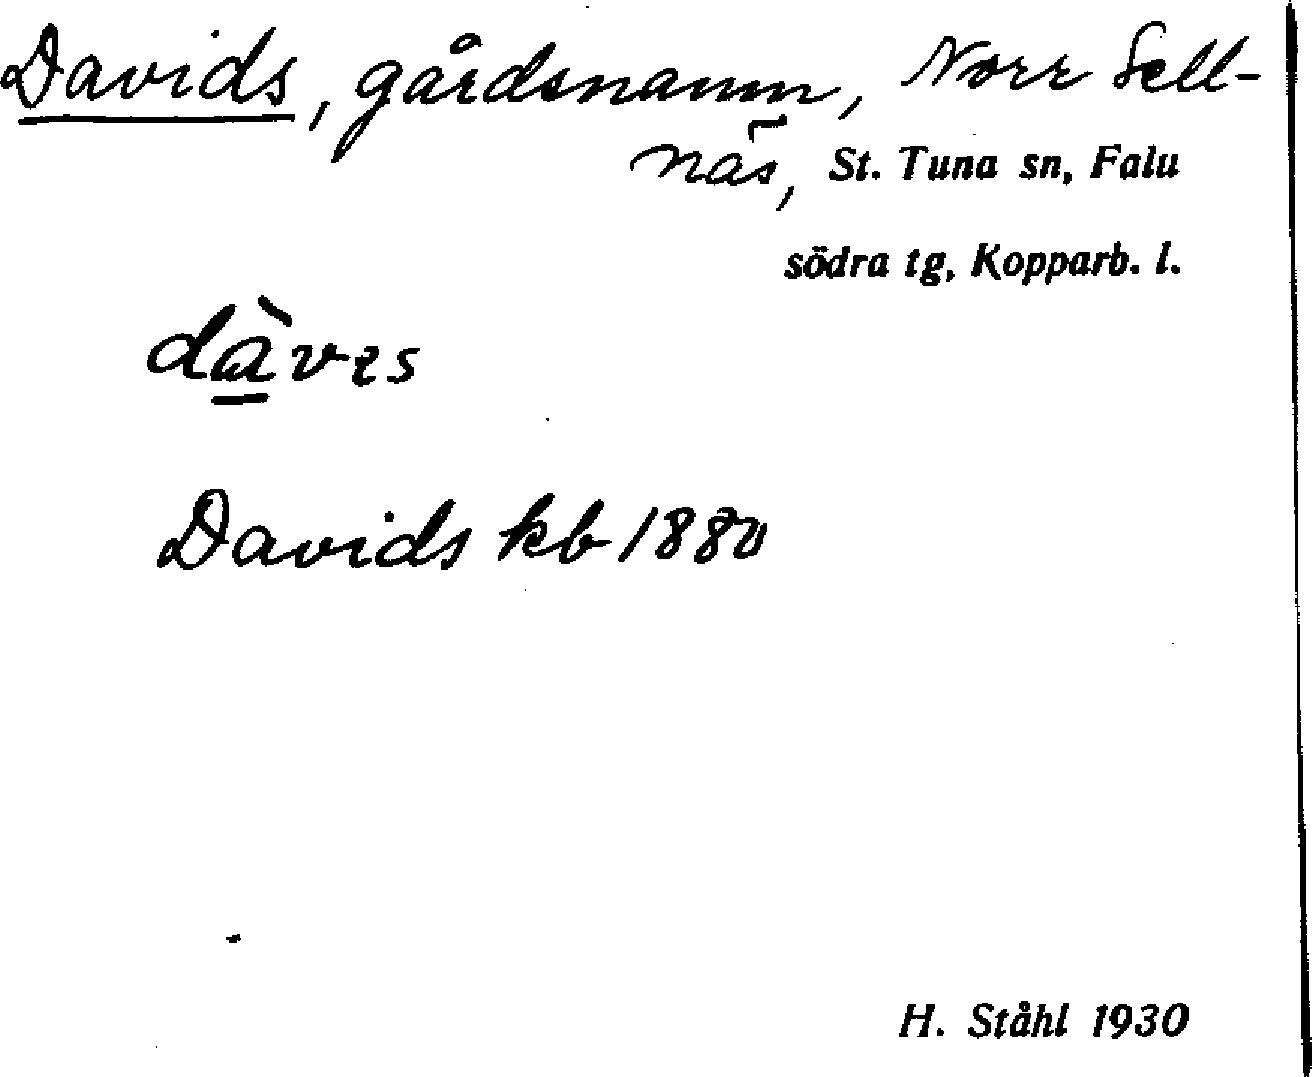 Davids, gårdsnamn, Norr Sell-
näs, St. Tuna sn, Falu
södra tg, Kopparb. l.
dàvɪs
Davids kb 1880
H. Ståhl 1930